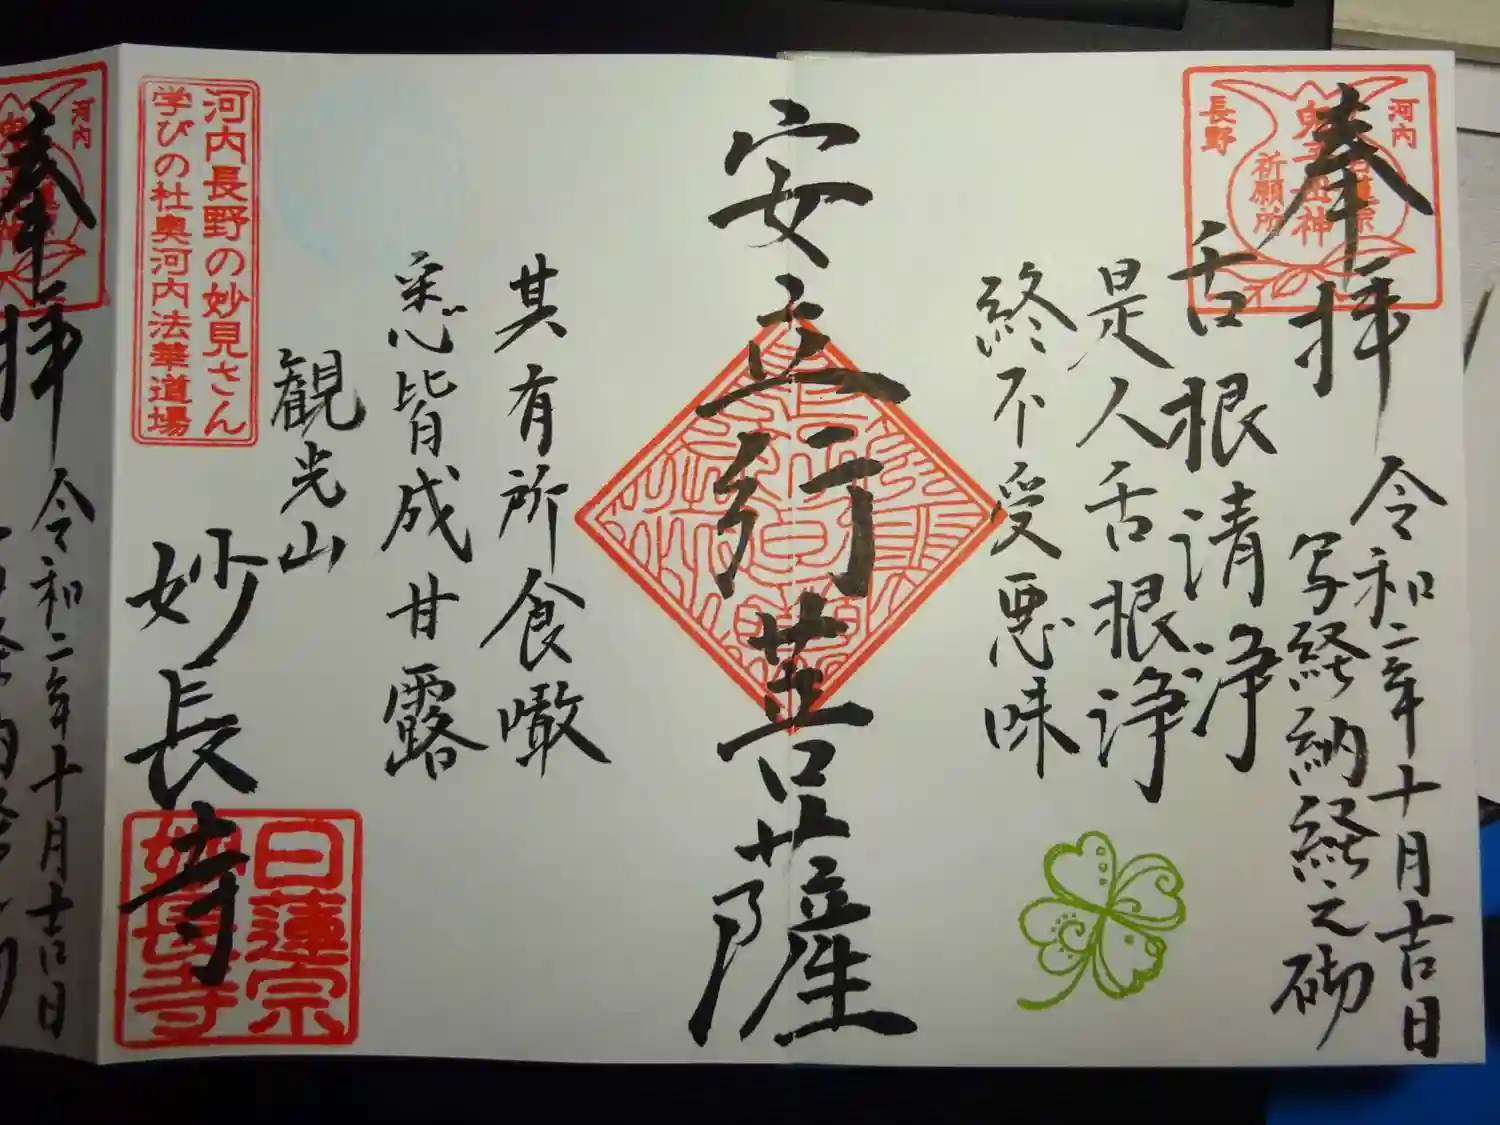 河内
長野
鬼子母神
日蓮宗
祈願所
奉拝
令和二年十月吉日
写経納経之砌
舌根清浄
是人舌根浄
終不受悪味
安立行菩薩
其有所食噉
悉皆成甘露
観光山
妙長寺
日蓮宗
妙長寺
河内長野の妙見さん
学びの杜奥河内法華道場
河内
奉拝
令和二年十月吉日